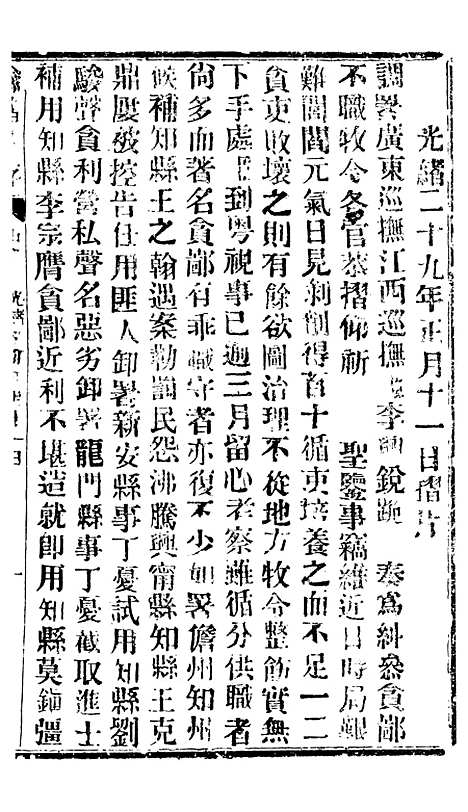 光緒二十九年正月十一日摺片
調署廣東巡撫江西巡撫臣李興銳跪 奏爲糾叅貪鄙
不職牧令各官恭摺仰祈 聖鑒事竊維近日時局艱
難閭閻元氣日見剝削得百十循吏培養之而不足一二
貪吏敗壞之則有餘欲圖治理不從地方牧令整飭實無
下手處臣到粵視事已逾三月留心考察雖循分供職者
尙多而著名貪鄙有乖職守者亦復不少如署儋州知州
候補知縣王之翰遇案勒罰民怨沸騰興甯縣知縣王克
鼎屢被控告任用匪人卸署新安縣事丁憂試用知縣劉
駿聲貪利營私聲名惡劣卸署龍門縣事丁憂截取進士
補用知縣李宗膺貪鄙近利不堪造就卽用知縣莫鍾彊